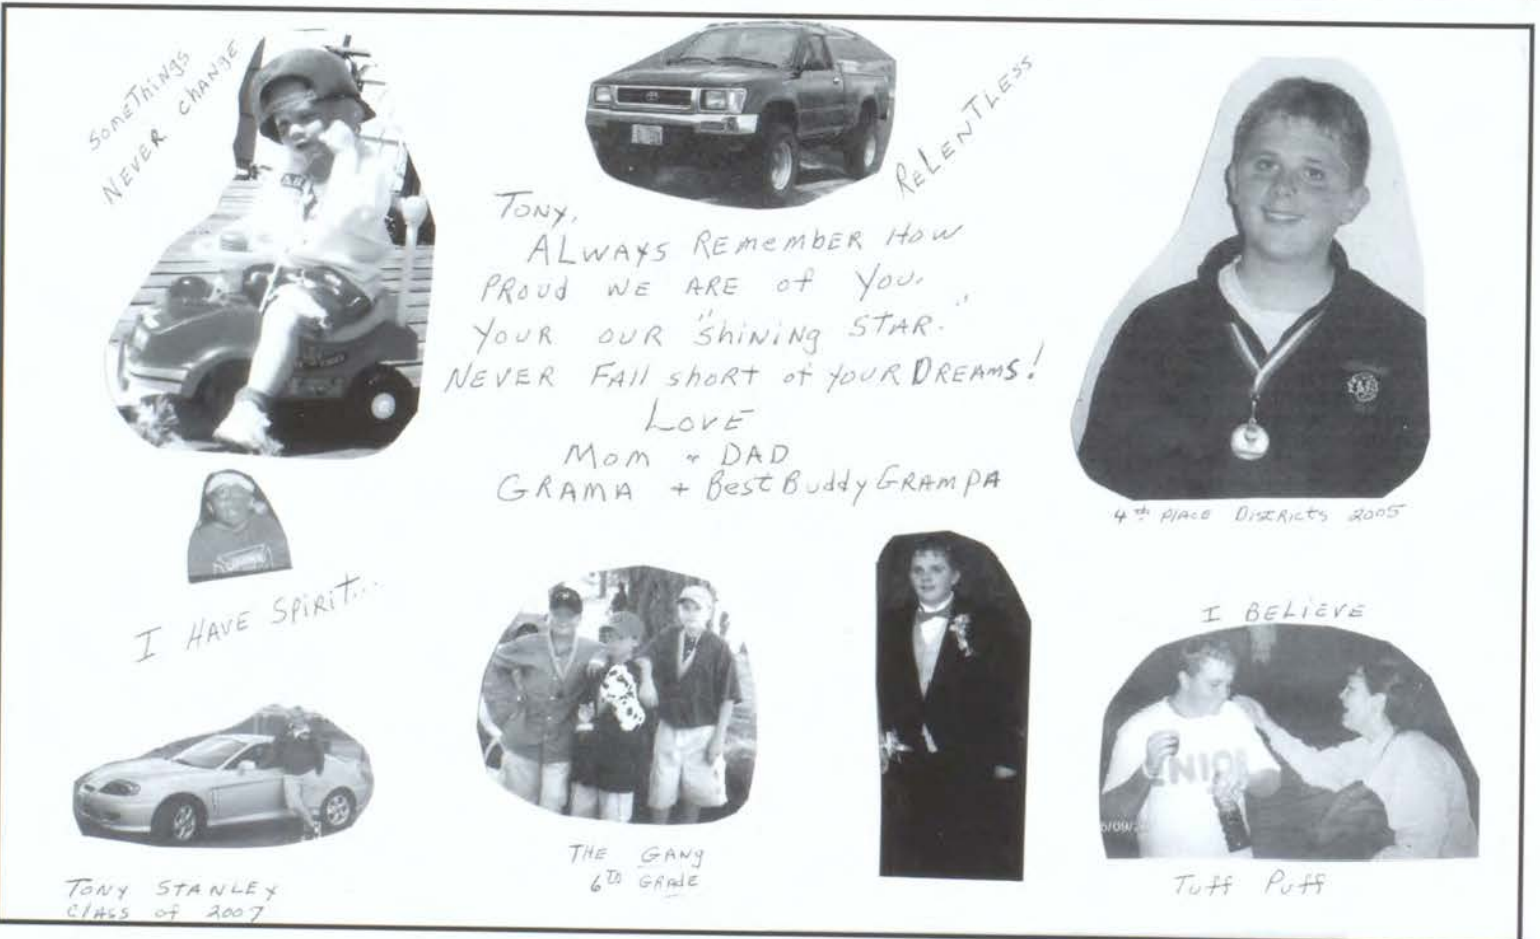 SomeThings
NEVER CHANGE
ReLENTLESS
TONY,
ALWAYS REMEMBER HOW
PROUD WE ARE of YOU.
YOUR OUR "ShiNiNg STAR."
NEVER FAll shoRT of YOUR DREAMS!
LOVE
Mom + DAD
GRAMA + Best Buddy GRAMPA
4th PlACE DistRicts 2005
I HAVE SPiRiT...
I BELiEVE
ENIOR
5/09/2
THE GANg
6TD GRAdE
Tuff Puff
TONY STANLEY
ClASS of 2007